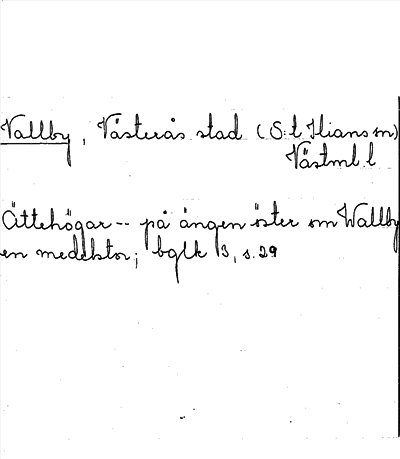 Vallby, Västerås stad (S:t Ilians sn)
Västml l
Ättehögar -- på ängen öster om Wallby
en medelstor; bglk 3, s. 29